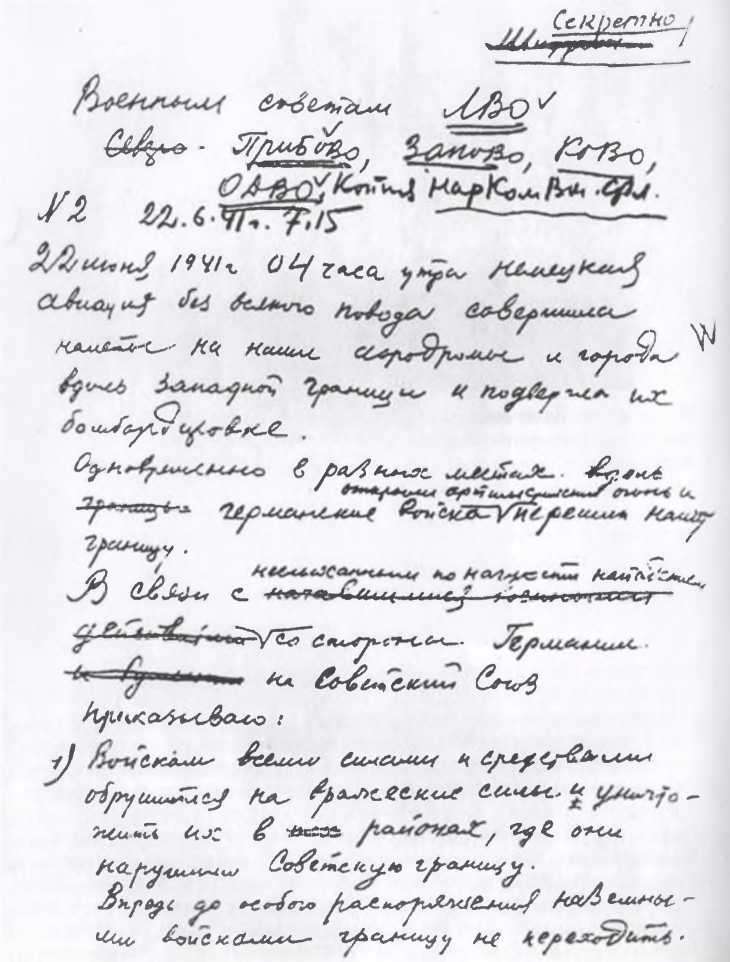 Секретно
Шифром
Военным советам ЛВО
Северо- ПрибОВО, ЗапОВО, КОВО,
ОДВО, Копия НарКомВн.Фл.
N 2 22.6.41г. 7.15
22 июня 1941г 04 часа утра немецкая
авиация без всякого повода совершила
налеты на наши аэродромы и города
вдоль западной границы и подвергла их
бомбардировке.
Одновременно в разных местах вдоль
открыли артиллерийский огонь и
границы германские войска перешли нашу
границу.
неслыханным по наглости нападением
В связи с начавшимися военными
действиями со стороны Германии
на Советский Союз
приказываю:
1) Войскам всеми силами и средствами
обрушится на вражеские силы и уничто-
жить их в районах, где они
нарушили Советскую границу.
Впредь до особого распоряжения наземны-
ми войсками границу не переходить.